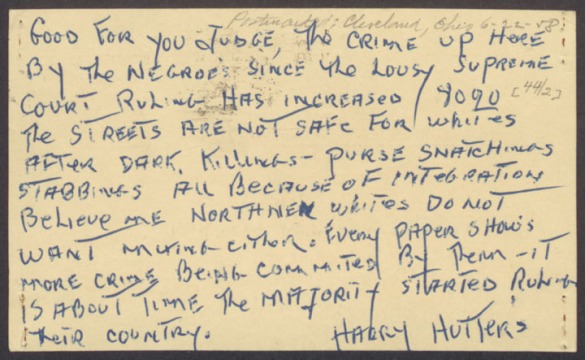 Postmarked: Cleveland, Ohio 6-22-58
GOOD FOR YOU JUDGE, The CRIME UP HERE
BY The NEGROES SINCE The LOUSY SUPREME
COURT RULING HAS INCREASED 90%
[44/2]
The STREETS ARE NOT SAFE FOR whites
AFTER DARK. KILLINGS - PURSE SNATCHINGS
STABBINGS All BECAUSE OF INTEGRATION
BELIEVE ME NORTHNEN WHITES DO NOT
WANT MIXING EITHER. EVERY PAPER SHOWS
MORE CRIME BEING COMMITED BY Them - IT
IS ABOUT TIME The MAJORITY STARTED RULING
Their COUNTRY. HARRY HUTTERS